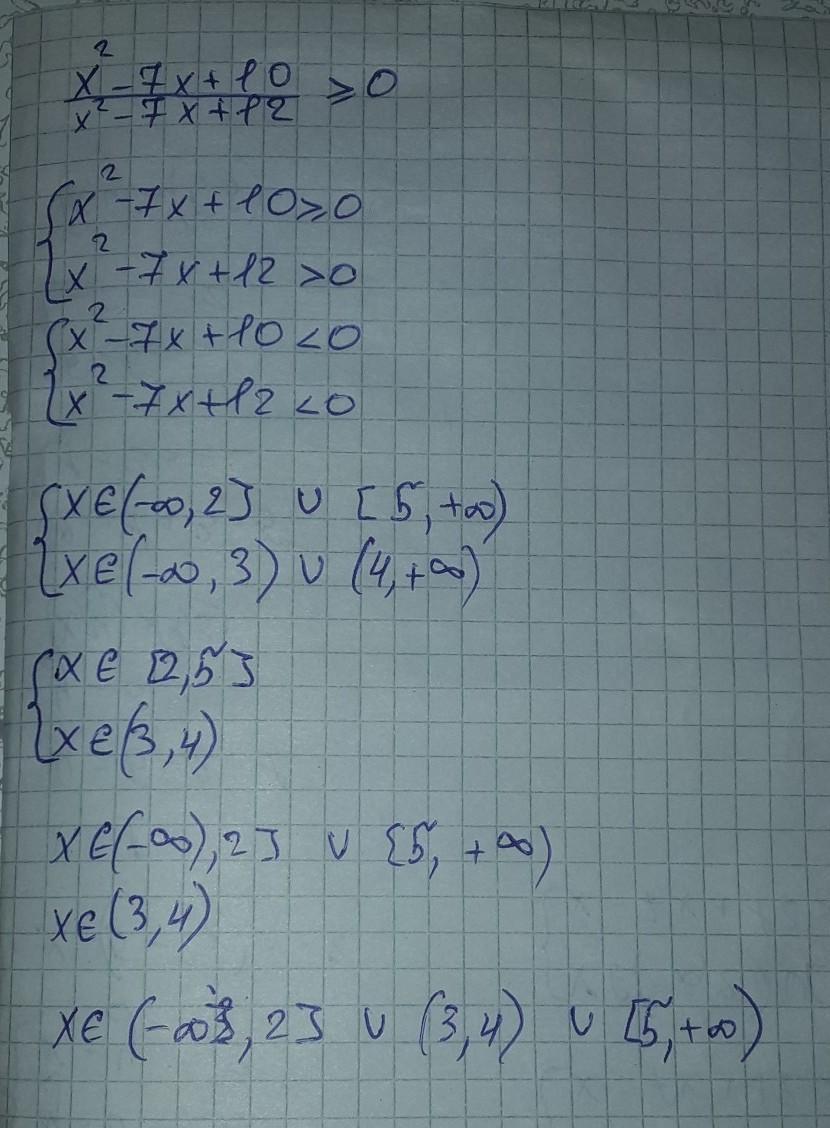 x² - 7x + 10
x² - 7x + 12 ≥ 0
{ x² - 7x + 10 ≥ 0
x² - 7x + 12 > 0
{ x² - 7x + 10 < 0
x² - 7x + 12 < 0
{ x ∈ (-∞, 2] ∪ [5, +∞)
x ∈ (-∞, 3) ∪ (4, +∞)
{ x ∈ [2, 5]
x ∈ (3, 4)
x ∈ (-∞), 2] ∪ [5, +∞)
x ∈ (3, 4)
x ∈ (-∞, 2] ∪ (3, 4) ∪ [5, +∞)